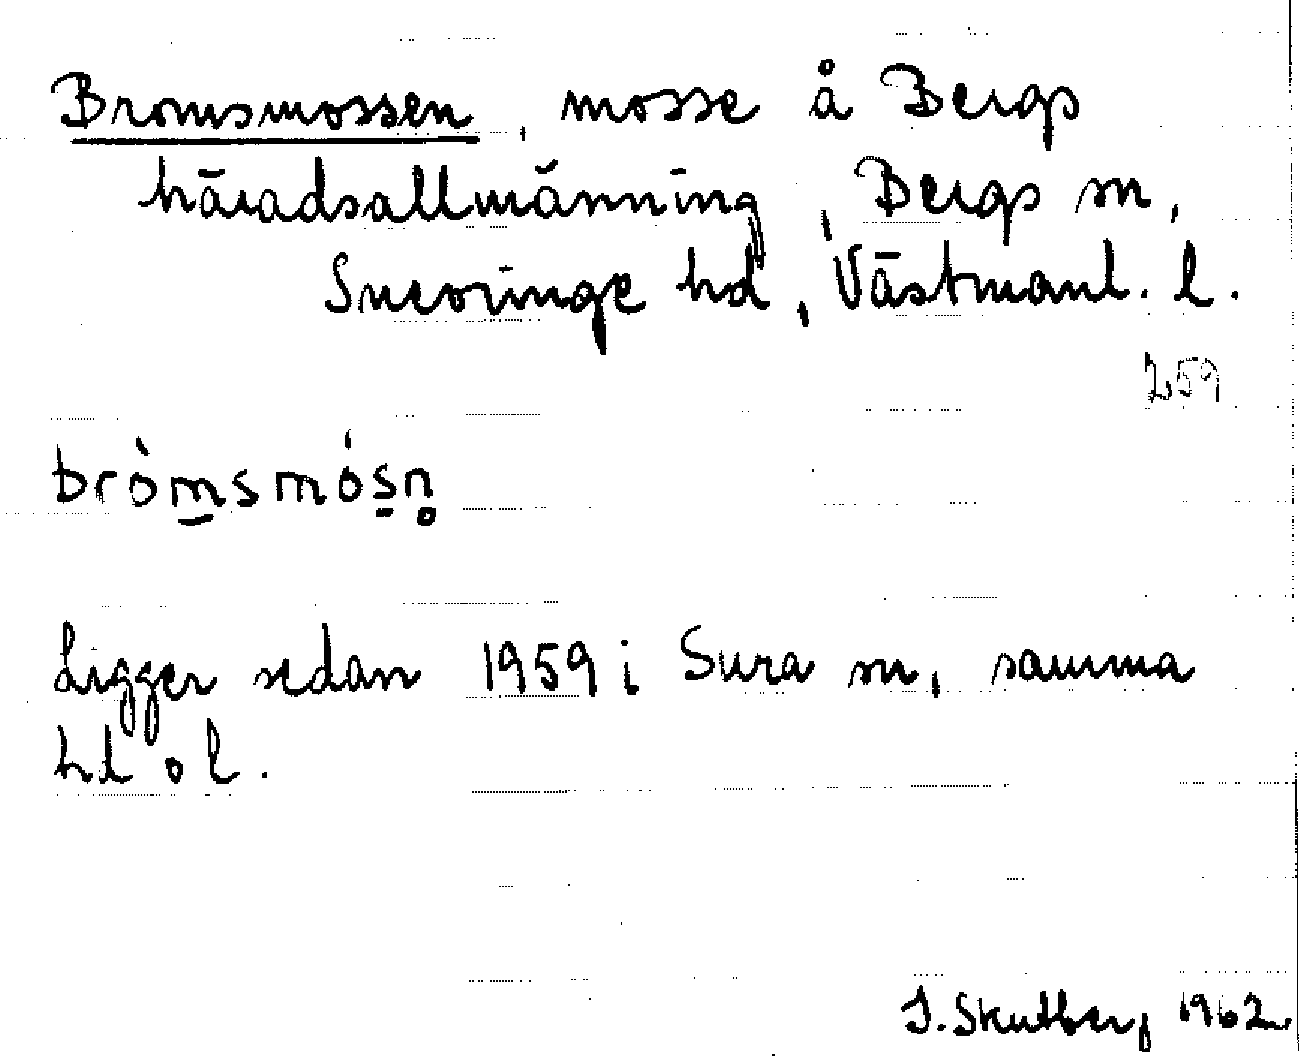 Bromsmossen, mosse å Bergs
häradsallmänning, Bergs sn,
Snevringe hd, Västmanl. l.
259
bròm̲smós̲n̥
Ligger sedan 1959 i Sura sn, samma
hd o l.
J. Skutberg 1962